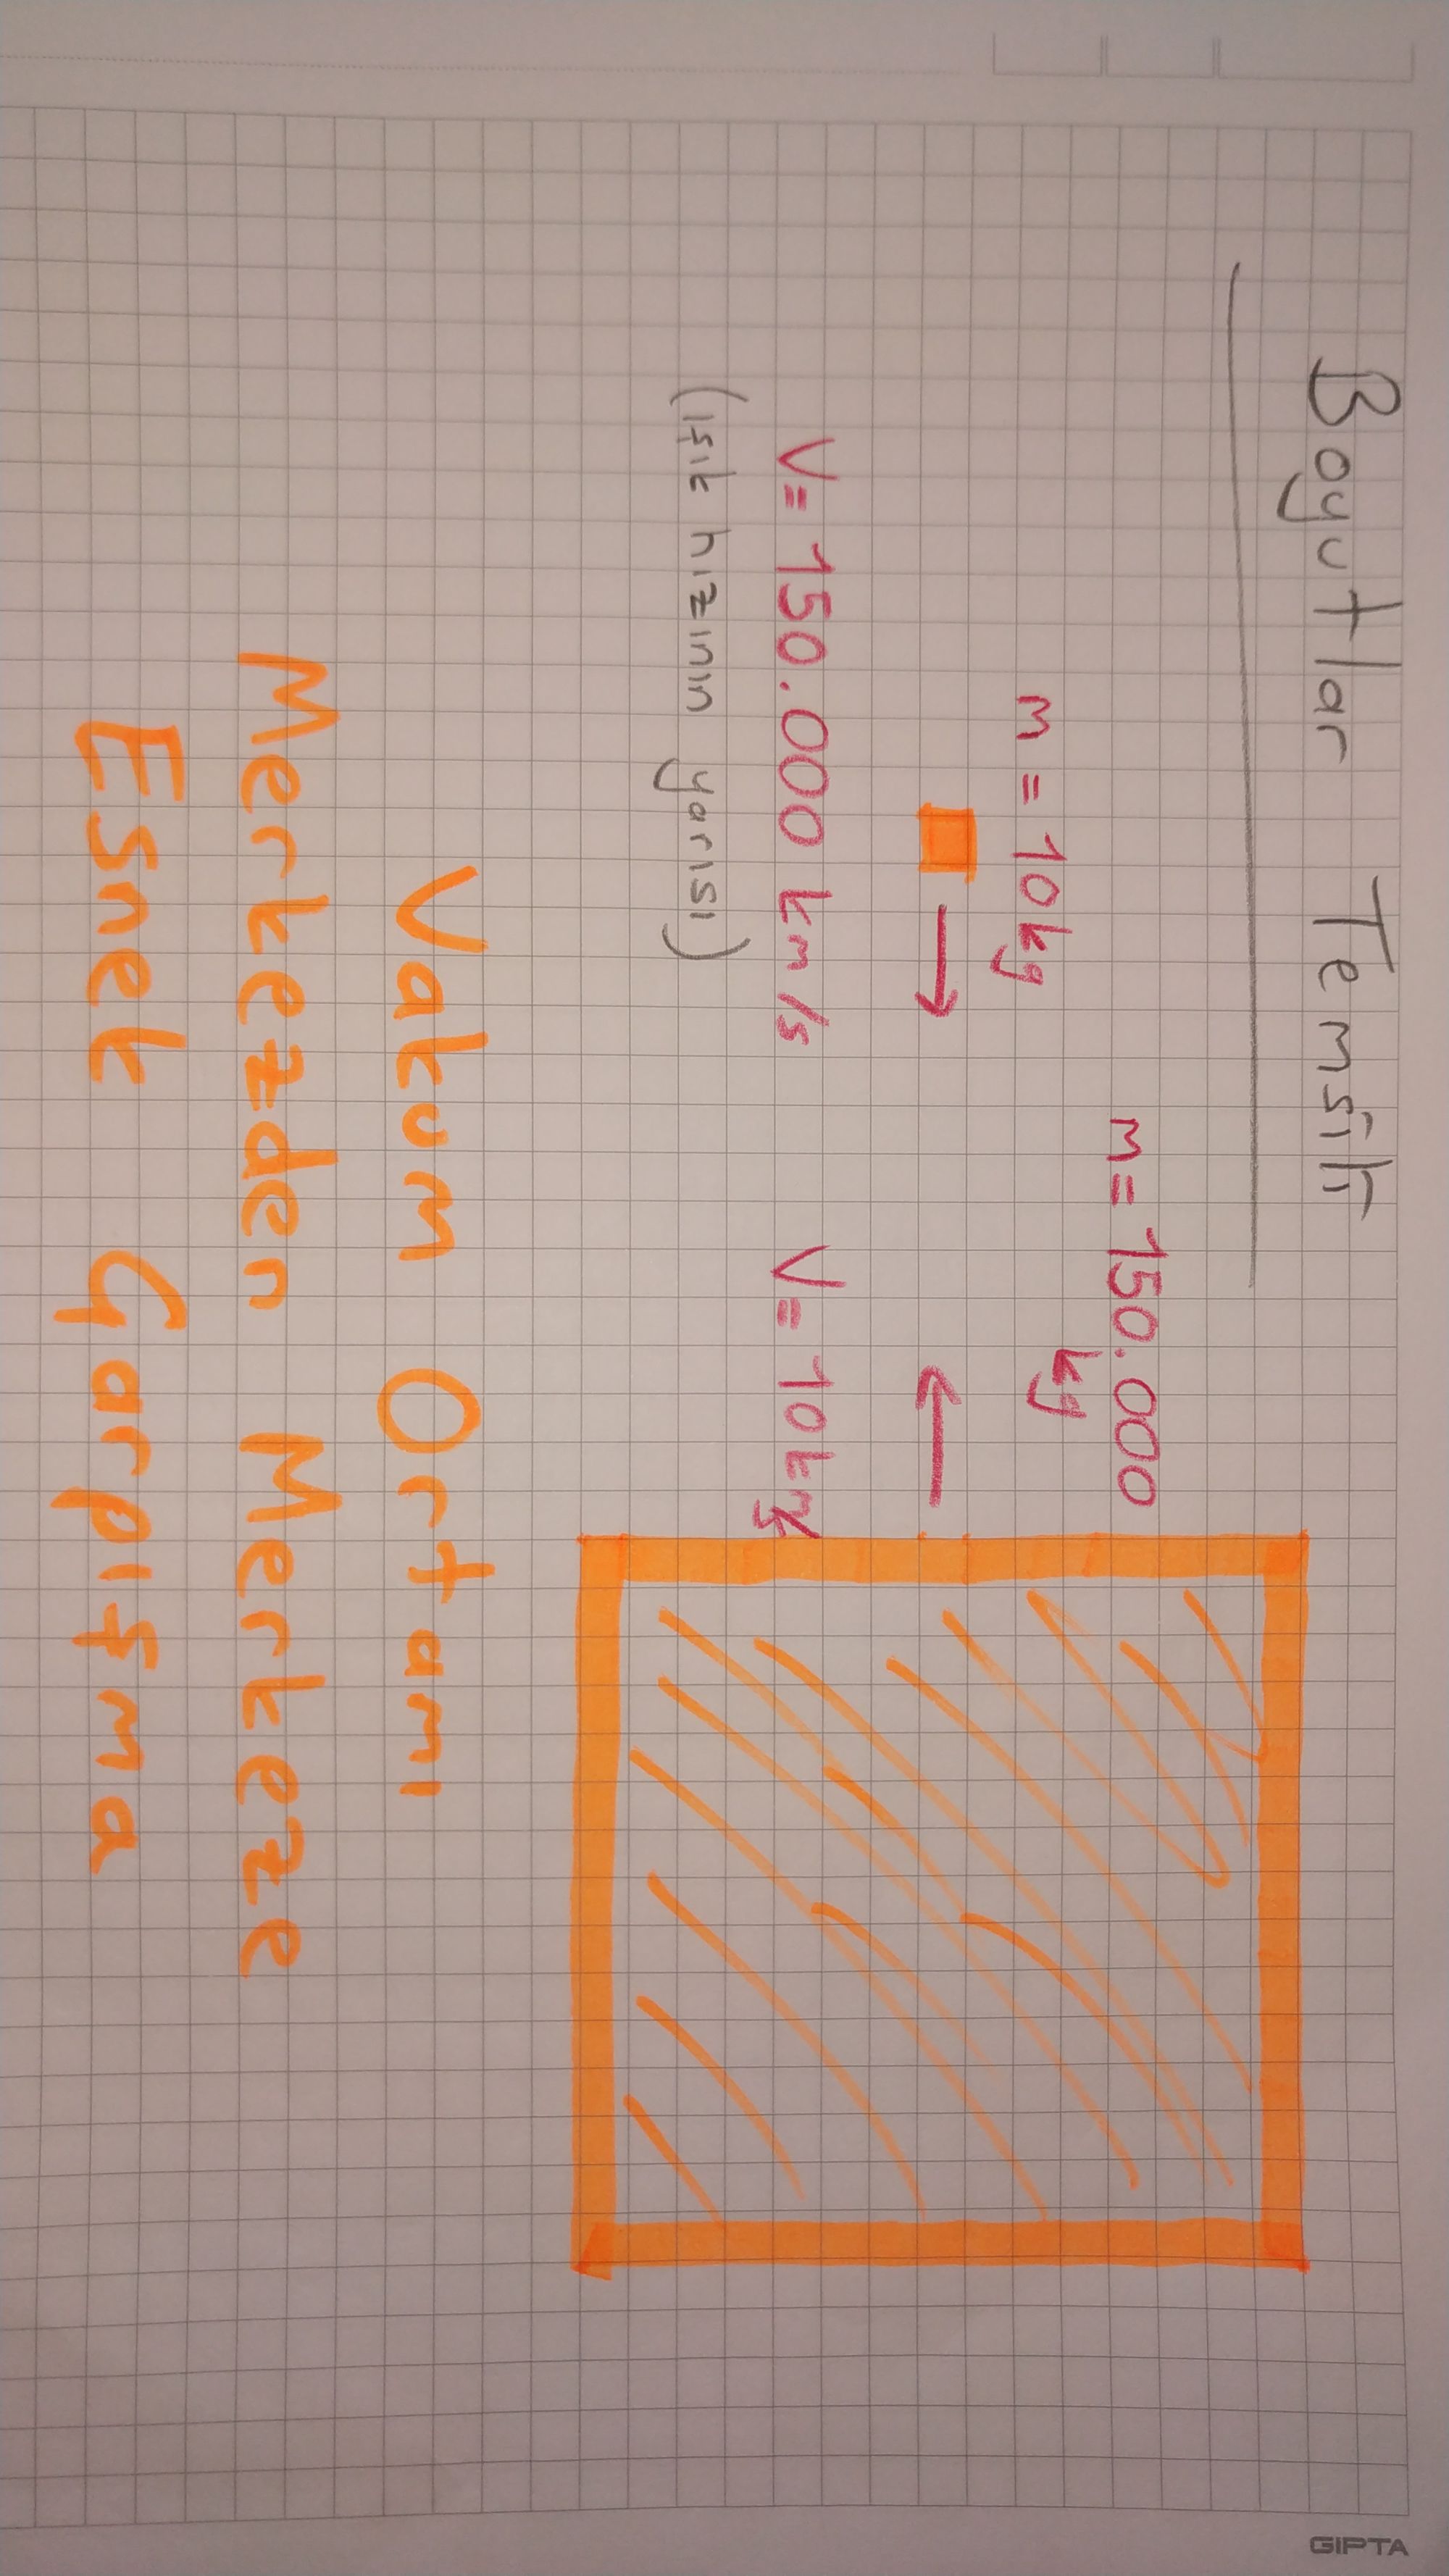 Boyutlar Temsili
m = 150.000
kg
m = 10kg
V = 150.000 km/s
V = 10km/s
(ışık hızının yarısı)
Vakum Ortamı
Merkezden Merkeze
Esnek Çarpışma
GIPTA